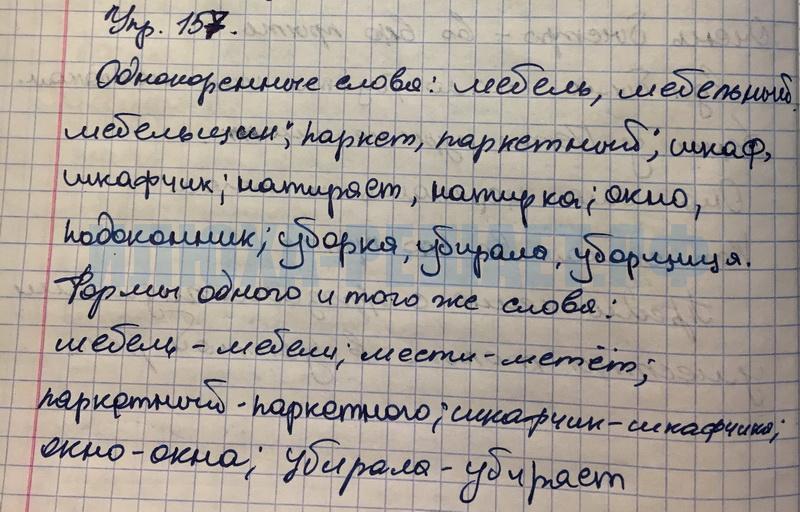 Упр. 157.
Однокоренные слова: мебель, мебельный,
мебельщик; паркет, паркетный; шкаф,
шкафчик; натирает, натирка; окно,
подоконник; уборка, убирала, уборщица.
Формы одного и того же слова:
мебель - мебели; мести - метёт;
паркетный - паркетного; шкафчик - шкафчика;
окно - окна; убирала - убирает